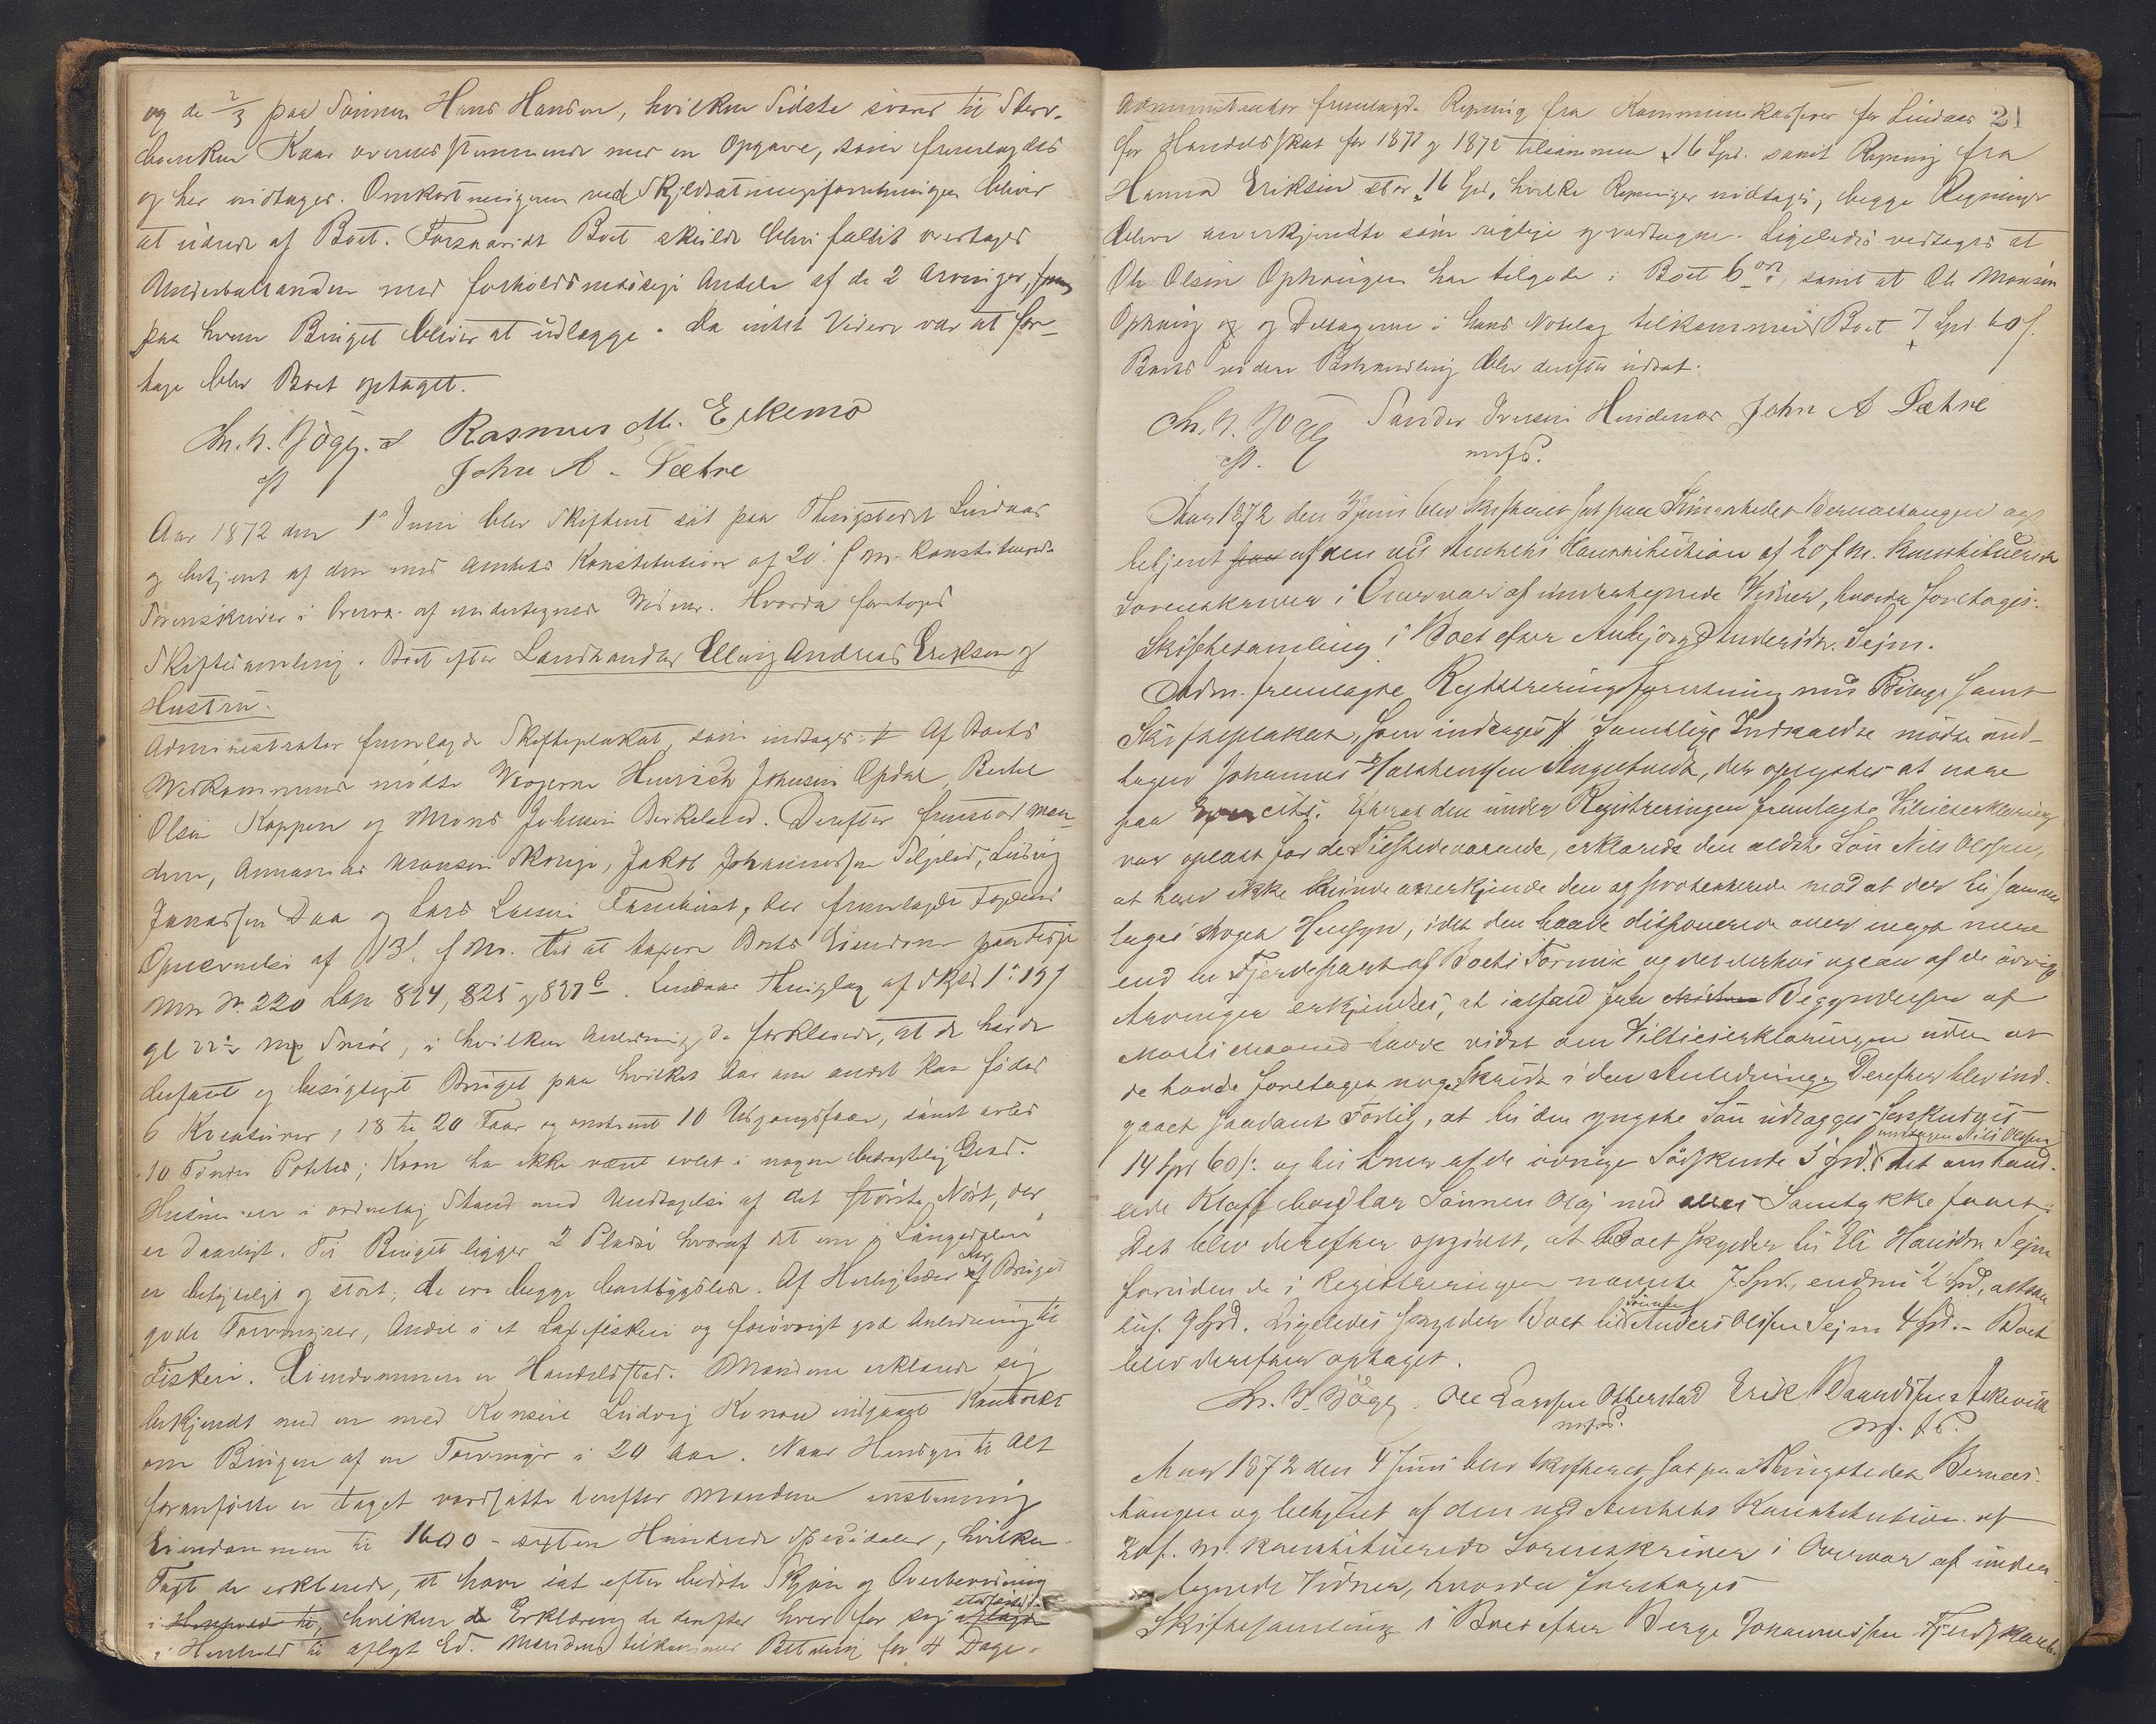 og de 2/3 paa Sønnen Hans Hansen, hvilken Sidste svarer til Sterv-
boenken Kaar overensstemmende med en Opgave, som fremlagdes
og her indtages. Omkostningerne ved Skyldsætningsforretningen bliver
at udrede af Boet. Forsaavidt Boet skulde blive fallit overtages
Underballancen med forholdsmæssige Andele af de 2 Arvinger,
paa hvem Bruget bliver at udlægge. Da intet Videre var at fore-
tage blev Boet optaget.
Rasmus M. Eikemo
cst John A. Sæthre
Aar 1872 den 1ste Juni blev Skifteret sat paa Thingstedet Lindaas
og betjent af den med Amtets Konstitution af 20. f. M. konstituerede
Sorenskriver i Overvær af undertegnede Vidner. Hvorda foretoges
Skiftesamling i Boet efter Landhandler Elling Andreas Eriksen og
Hustru.
Administrator fremlagde Skifteplakat, som indtages. Af Boets
Vedkommende mødte Værgerne Henrich Johnsen Opdal, Bertel
Olsen Koppen og Mons Johnsen Birkeland. Derefter fremstod Mæn-
dene, Annanias Monsen Skorge, Jakob Johannessen, Ludvig
Jonassen Daa og Lars Larsen, der fremlagde Fogdens
Opnævnelse af 13. f. M. til at taxere Boets Eiendom
Mtr No. 220 Løbe 824, 825 og 827 c Lindaas Thinglag af Skyld
gl Smør, i hvilken Anledning de forklarede, at de havde
befaret og besigtiget Bruget paa hvilket Aar om andet kan fødes
6 Kreaturer, 18 til 20 Faar og omtrent 10 Udgangsfaar, samt avles
10 Tønder Poteter; Korn har ikke været avlet i nogen betragtelig Grad.
Husene ere i ordentlig Stand med Undtagelse af det største Nøst, der
er daarligt. Til Bruget ligger 2 Pladse hvoraf det ene
er betydeligt og stort; de ere begge bortbygslede. Af Herligheder har Bruget
gode Torvmyrer, Andel i et Laxefiskeri og forøvrigt god Anledning til
Fiskeri. Eiendommen er Handelssted. Mændene erklærede sig
bekjendt med en med Konsul Ludvig Konow indgaaet Kontrakt
om Brugen af en Torvmyr i 20 Aar. Naar Hensyn til Alt
foranførte er taget værdsatte derefter Mændene enstemmig
Eiendommen til 1600 - sexten Hundrede Speciedaler, hvilken
Taxt de erklærede, at have sat efter bedste Skjøn og Overbevisning
i Henhold til, hvilken Erklæring de derefter hver for sig aflagde
i Henhold til aflagt Ed. Mændene tilkommer Betaling for 4 Dage.
21
Administrator fremlagde Regning fra Kommunekasserer for Lindaas
for Handelsskat for 1871 og 1872 tilsammen 16 Spd. samt Regning fra
Hanna Eriksen stor 16 Spd, hvilke Regninger indtages, begge Regninger
bleve anerkjendte som rigtige og vedtagne. Ligeledes vedtages at
Ole Olsen Ophaugen har tilgode i Boet 6 ort, samt at Ole Monsen
Ophaug og Deltagerne i hans Notelag tilkommer Boet 7 Spd 60 s.
Boets videre Behandling blev derefter udsat.
cst. Sander Iversen Hundenes John A Sæthre
m.f.P.
Aar 1872 den 3 Juni blev Skifteret sat paa Thingstedet Bernæshaugen og
betjent paa af den ved Amtets Konstitution af 20 f. M. konstituerede
Sorenskriver i Overvær af undertegnede Vidner, hvorda foretoges:
Skiftesamling i Boet efter Anbjørg Andersdtr. Sejm.
Adm. fremlagde Registreringsforretning med Bilage samt
Skifteplakat, som indtages // Samtlige Indkaldte mødte und-
tagen Johannes Halstensen Angeltvedt, der oplystes at være
paa. Efterat den under Registreringen fremlagte Vilieserklæring
var oplæst for de Tilstedeværende, erklærede den ældste Søn Nils Olsen,
at han ikke kunde anerkjende den og protesterede mod at der til samme
toges noget Hensyn, idet den havde disponeret over meget mere
end en Fjerdepart af Boets Formue og det derhos ogsaa af de øvrige
Arvinger erkjendtes, at ialfald fra Begyndelsen af
Marts Maaned havde vidst om Vilieserklæringen uden at
de havde foretaget noget Skridt i den Anledning. Derefter blev ind-
gaaet saadant Forlig, at til den yngste Søn udlægges forskudsvis
14 Spd 60 s. og til hver af de øvrige Sødskende 5 Spd. undtagen Nils Olsen det omhand-
lede Klappbord har Sønnen Olaj med alles Samtykke faaet.
Det blev derefter opgivet, at Boet skylder til Eli Hansdtr. Sejm
foruden de i Registreringen nævnte 7 Spd., endnu 2 Spd, altsaa
tils. 9 Spd. Ligeledes skylder Boet til Sønnen Anders Olsen Sejm 4 Spd. - Boet
blev derefter optaget.
Ole Larssen Otterstad Erik Baardsen Askevik
m.f.P. m.f.P.
Aar 1872 den 4 Juni blev Skifteret sat paa Thingstedet Bernæs-
haugen og betjent af den ved Amtets Konstitution af
20 f. M. konstituerede Sorenskriver i Overvær af under-
tegnede Vidner, hvorda foretoges
Skiftesamling i Boet efter Berge Johannessen